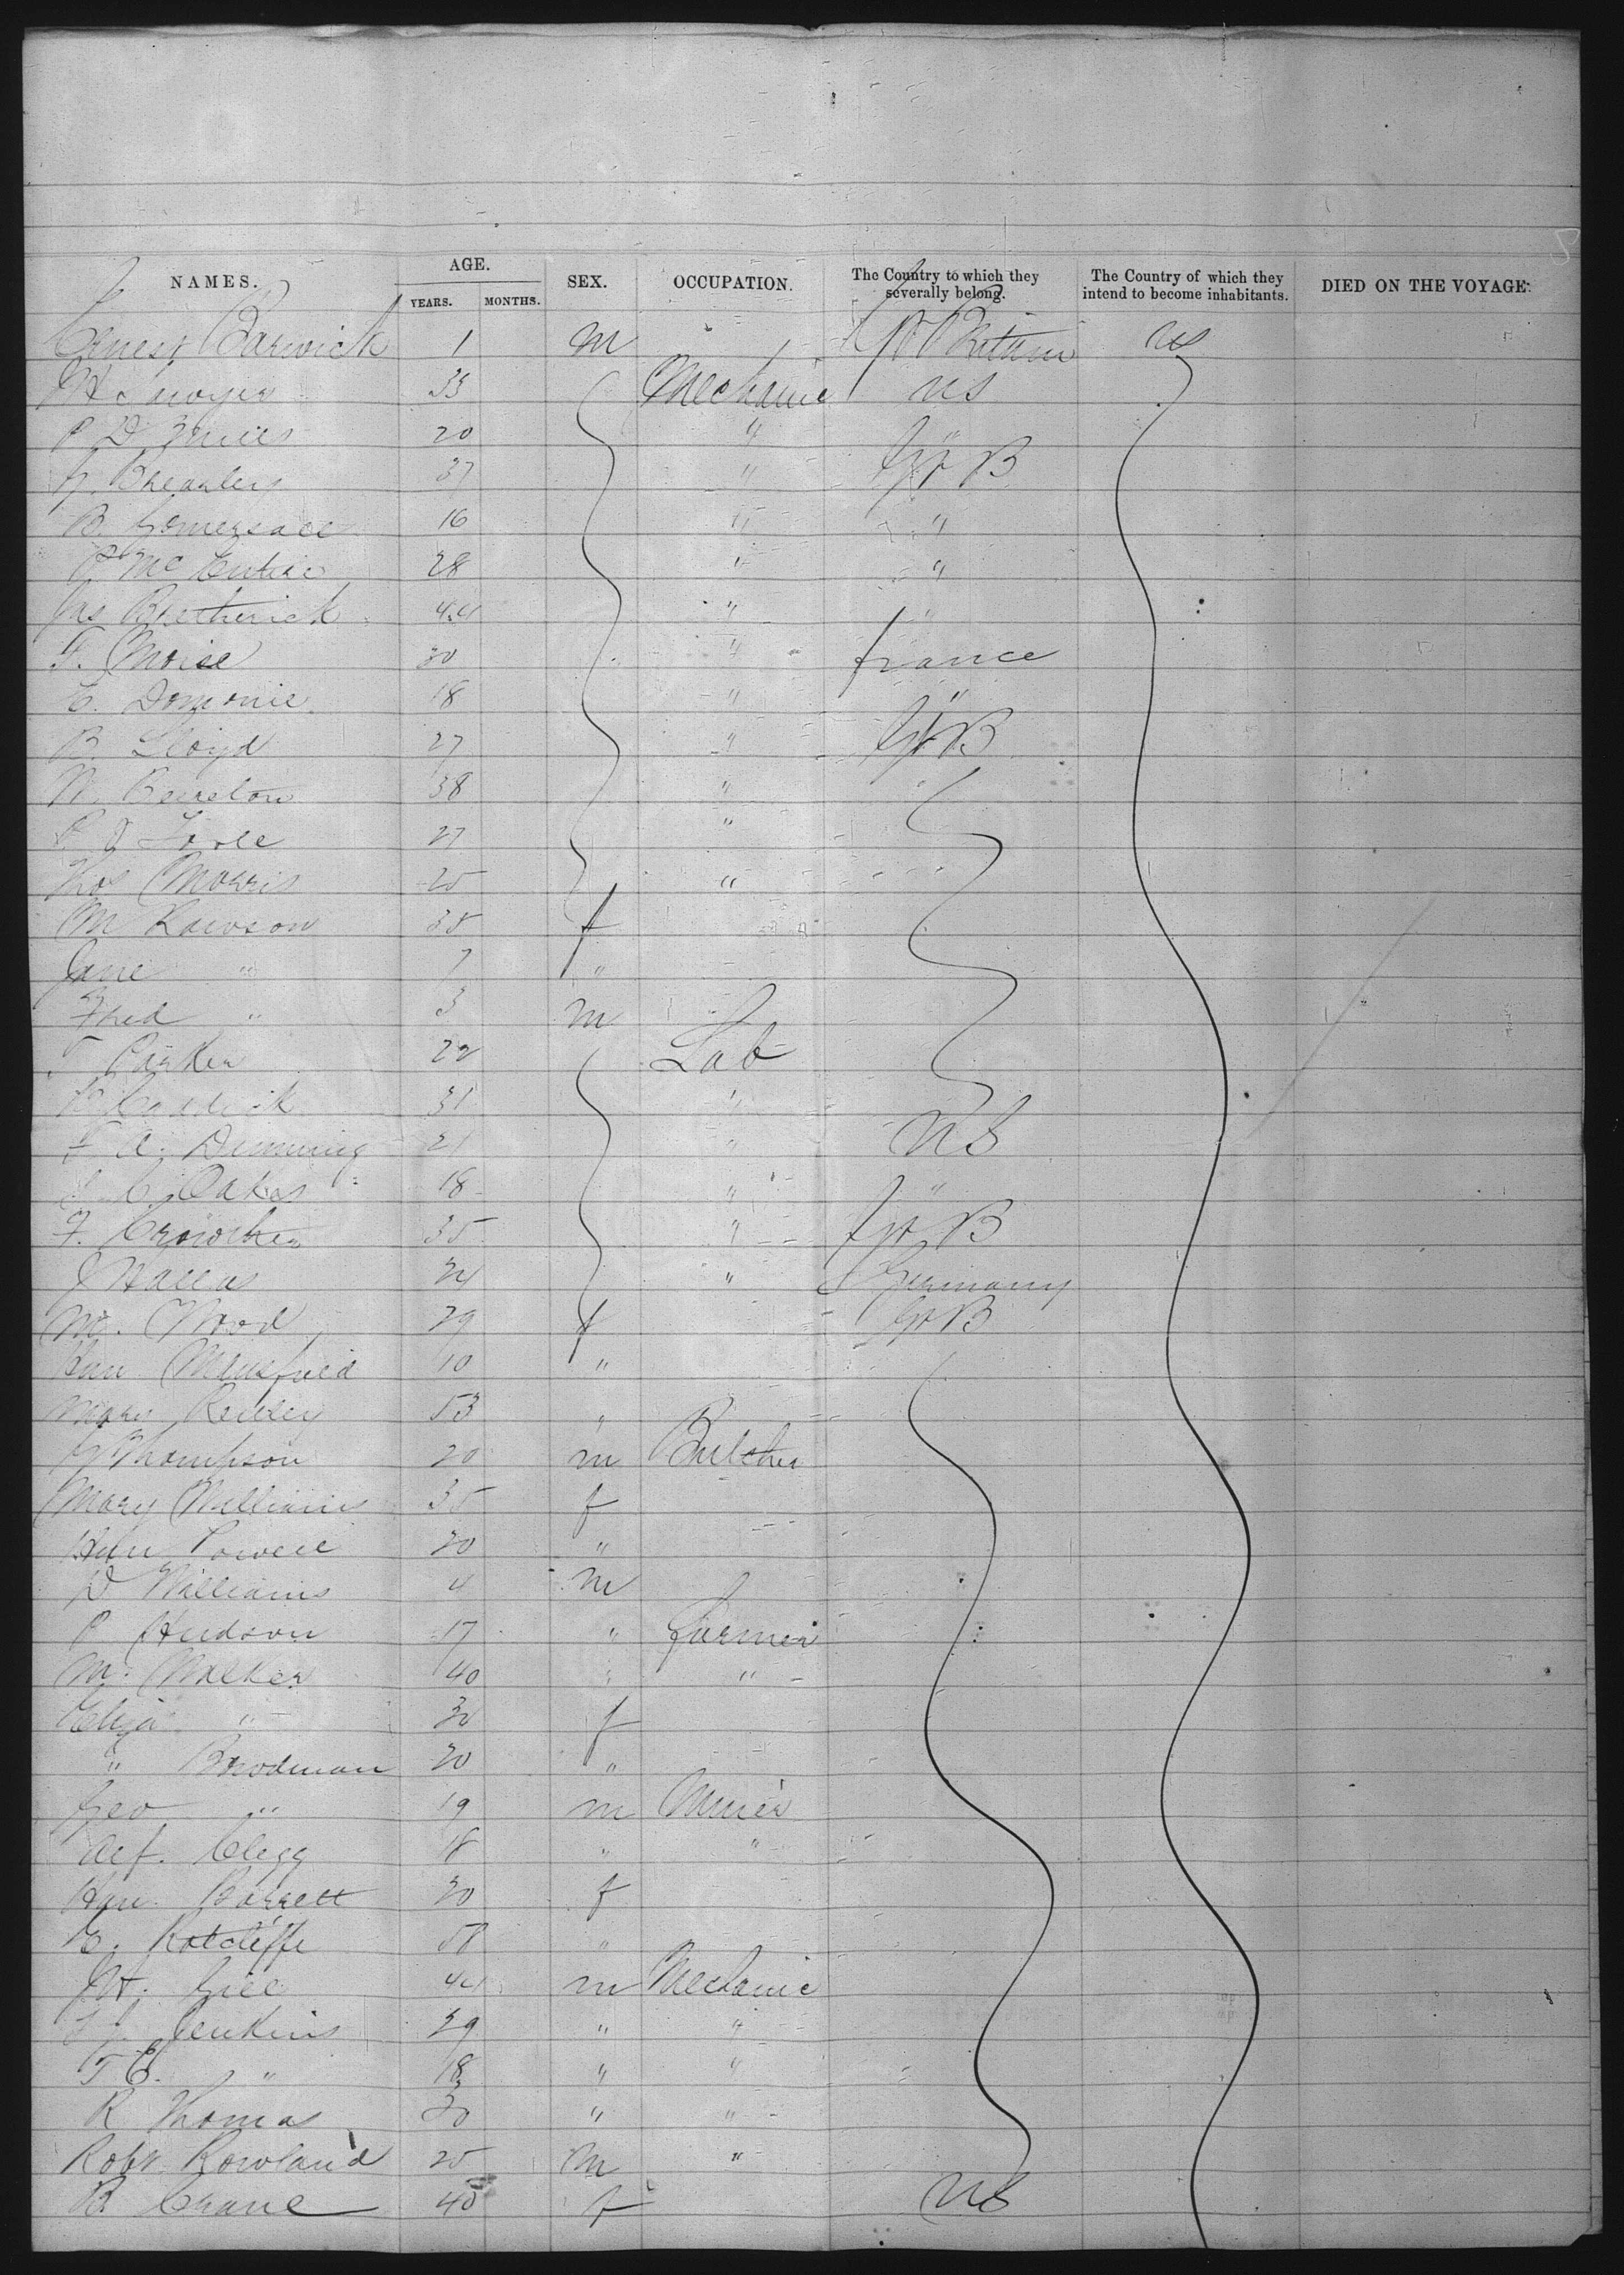 NAMES. AGE. SEX. OCCUPATION. The Country to which they severally belong. The Country of which they intend to become inhabitants. DIED ON THE VOYAGE.
YEARS. MONTHS.
Ernest Barwick 1 m Gt Britain US
H Sawyer 33 Mechanic US
P D 20 " "
G. 37 " Gt B
B. Gomersall 16 " "
P McEntire 28 " "
Jas Bretherick 44 " "
F. Moise 30 " france
E. Domonie 18 " "
B. Lloyd 27 " Gt B
W. Beeston 38 "
27 "
Thos Morris 25 "
M Lawson 38 f
Jane " 7 "
Fred " 3 m
T Parker 22 Lab
31 "
F. A. Dimming 21 " US
C. Oakes 18 " "
F. Crowther 35 " Gt B
J Hallas 24 " Germany
M. Wood 29 f Gt B
Ann 10 "
Mary 53 "
G Thompson 20 m Butcher
Mary Williams 35 f
Ann Powell 20 "
D Williams 4 m
P Hudson 17 " farmer
M. Walker 40 " "
Eliza " 30 f
" Boodman 20 "
Geo " 19 m Miner
Alf. Clegg 18 " "
Ann Barrett 20 f
E. Ratcliffe 58 "
Gill 44 m Mechanic
J. Jenkins 39 " "
T E. " 18 " "
R Thomas 30 " "
Robt Rowland 25 m "
B. Crane 40 f US